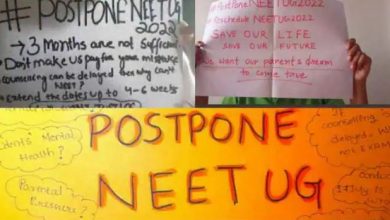 #POSTPONENEETUG
2022
→3 Months are not Sufficien
→Don't make us pay for your mistake
counselling can be delayed then why can't
NEET?
→extend the dates up to 4-6 weeks
#PostponeNEETUG2022
#Reschedule NEETUG2022
SAVE OUR LIFE
SAVE OUR FUTURE
We want our parent's dream
to come true
POSTPONE
NEET UG
Mental
Health?
Parental
Pressure?
If
counselling
delayed
not EXAM
Conduct
17 July